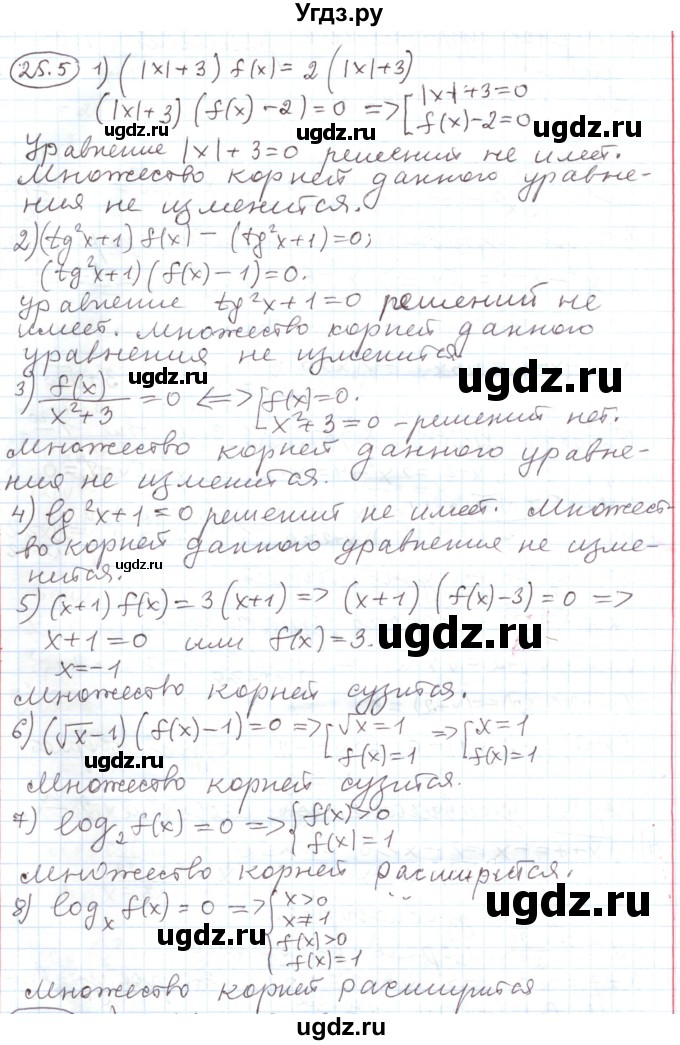 Угдз.ру
25.5 1) (|x|+3) f(x) = 2 (|x|+3)
(|x|+3) (f(x)-2)=0 => [ |x|+3=0
f(x)-2=0
ugdz.ru ugdz.ru ugdz.ru
Уравнение |x|+3=0 решений не имеет.
Множество корней данного уравне-
ния не изменится.
ugdz.ru
2) (tg²x+1) f(x) - (tg²x+1)=0;
(tg²x+1) (f(x)-1)=0.
ugdz.ru
уравнение tg²x+1=0 решений не
имеет. множество корней данного
уравнения не изменится
ugdz.ru ugdz.ru
3) f(x)/(x²+3) = 0 <=> [ f(x)=0.
x²+3=0 - решений нет.
Множество корней данного уравне-
ния не изменится.
4) lg²x+1=0 решений не имеет. Множест-
во корней данного уравнения не изме-
нится.
ugdz.ru
5) (x+1) f(x)=3 (x+1) => (x+1) (f(x)-3)=0 =>
x+1=0 или f(x)=3.
x=-1
ugdz.ru ugdz.ru
Множество корней сузится.
6) (√x-1) (f(x)-1)=0 => [ √x=1 => [ x=1
f(x)=1 f(x)=1
ugdz.ru
Множество корней сузится.
7) log₂ f(x) = 0 => { f(x)>0
f(x)=1
ugdz.ru
Множество корней расширится.
8) logₓ f(x) = 0 => { x>0
x≠1
f(x)>0
f(x)=1
ugdz.ru ugdz.ru
Множество корней расширится
ugdz.ru